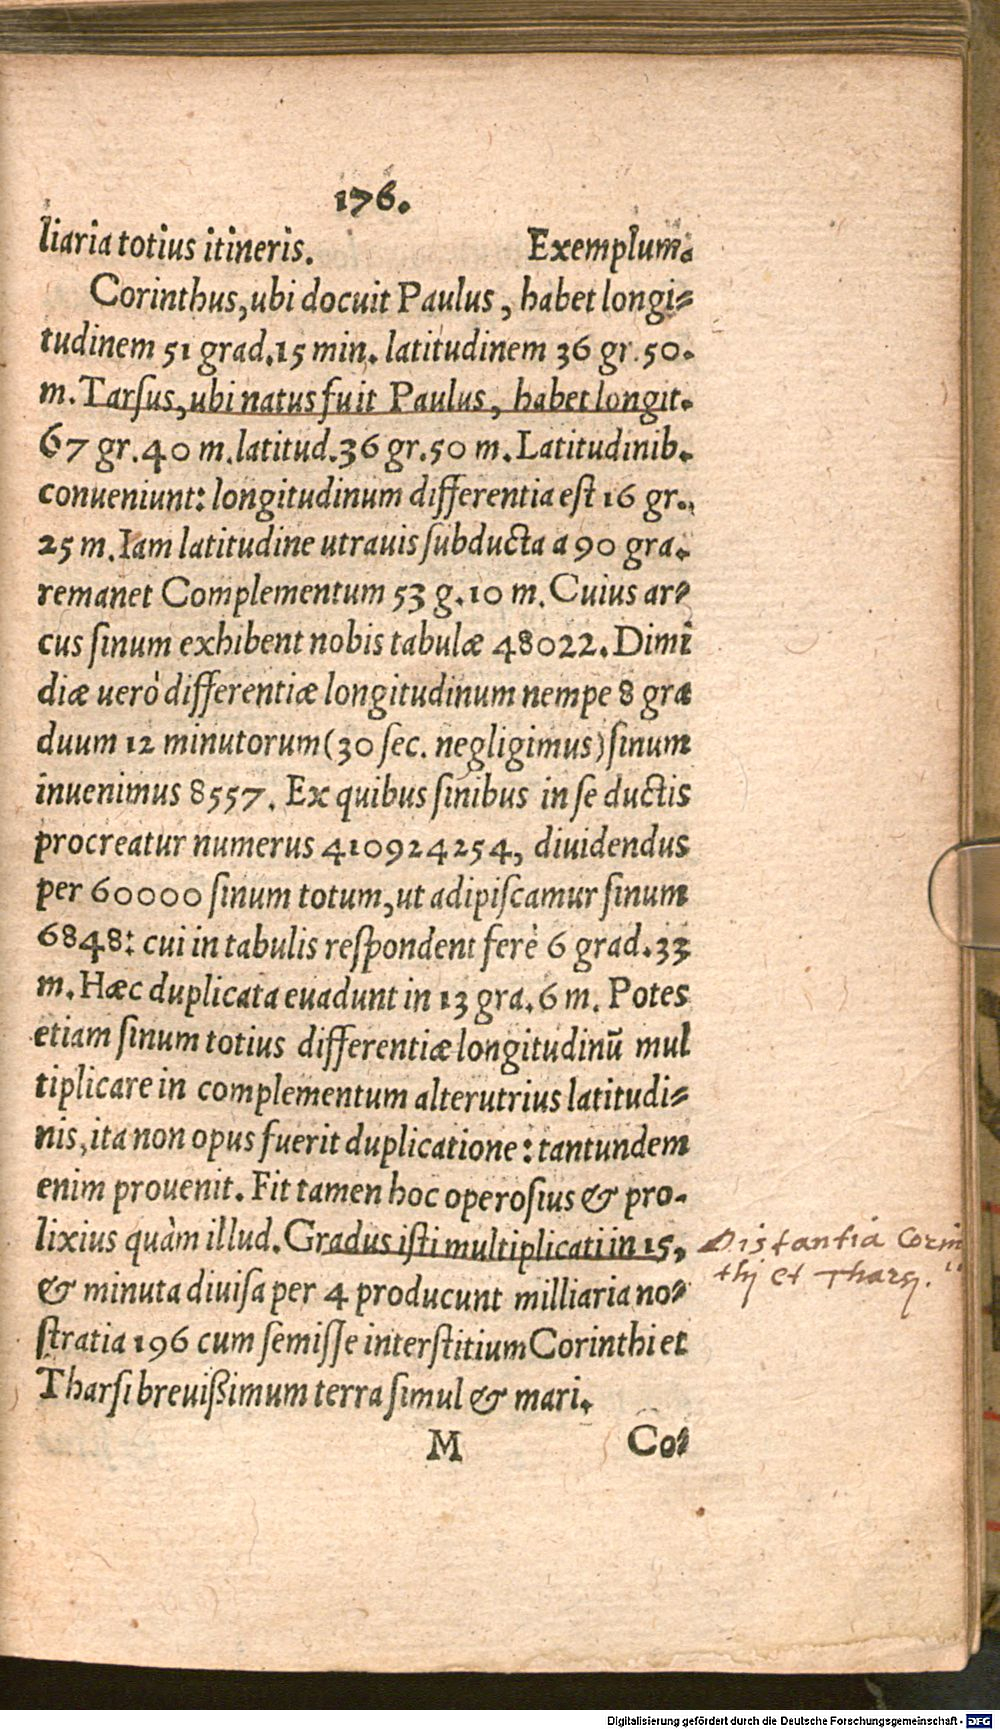 176.
liaria totius itineris. Exemplum.
Corinthus, ubi docuit Paulus, habet longi=
tudinem 51 grad. 15 min. latitudinem 36 gr. 50.
m. Tarſus, ubi natus fuit Paulus, habet longit.
67 gr. 40 m. latitud. 36 gr. 50 m. Latitudinib.
conueniunt: longitudinum differentia eſt 16 gr.
25 m. Iam latitudine utrauis ſubducta a 90 gra.
remanet Complementum 53 g. 10 m. Cuius ar=
cus ſinum exhibent nobis tabulæ 48022. Dimi
diæ uerò differentiæ longitudinum nempe 8 gra
duum 12 minutorum (30 ſec. negligimus) ſinum
inuenimus 8557. Ex quibus ſinibus in ſe ductis
procreatur numerus 410924254, diuidendus
per 60000 ſinum totum, ut adipiſcamur ſinum
6848: cui in tabulis reſpondent ferè 6 grad. 33
m. Hæc duplicata euadunt in 13 gra. 6 m. Potes
etiam ſinum totius differentiæ longitudinũ mul
tiplicare in complementum alterutrius latitudi=
nis, ita non opus fuerit duplicatione: tantundem
enim prouenit. Fit tamen hoc operoſius & pro-
lixius quàm illud. Gradus iſti multiplicati in 15,
& minuta diuiſa per 4 producunt milliaria no=
ſtratia 196 cum ſemiſſe interſtitium Corinthi et
Tharſi breuißimum terra ſimul & mari.
M Co=
Distantia Corin
thj et Tharsj.
Digitalisierung gefördert durch die Deutsche Forschungsgemeinschaft - DFG